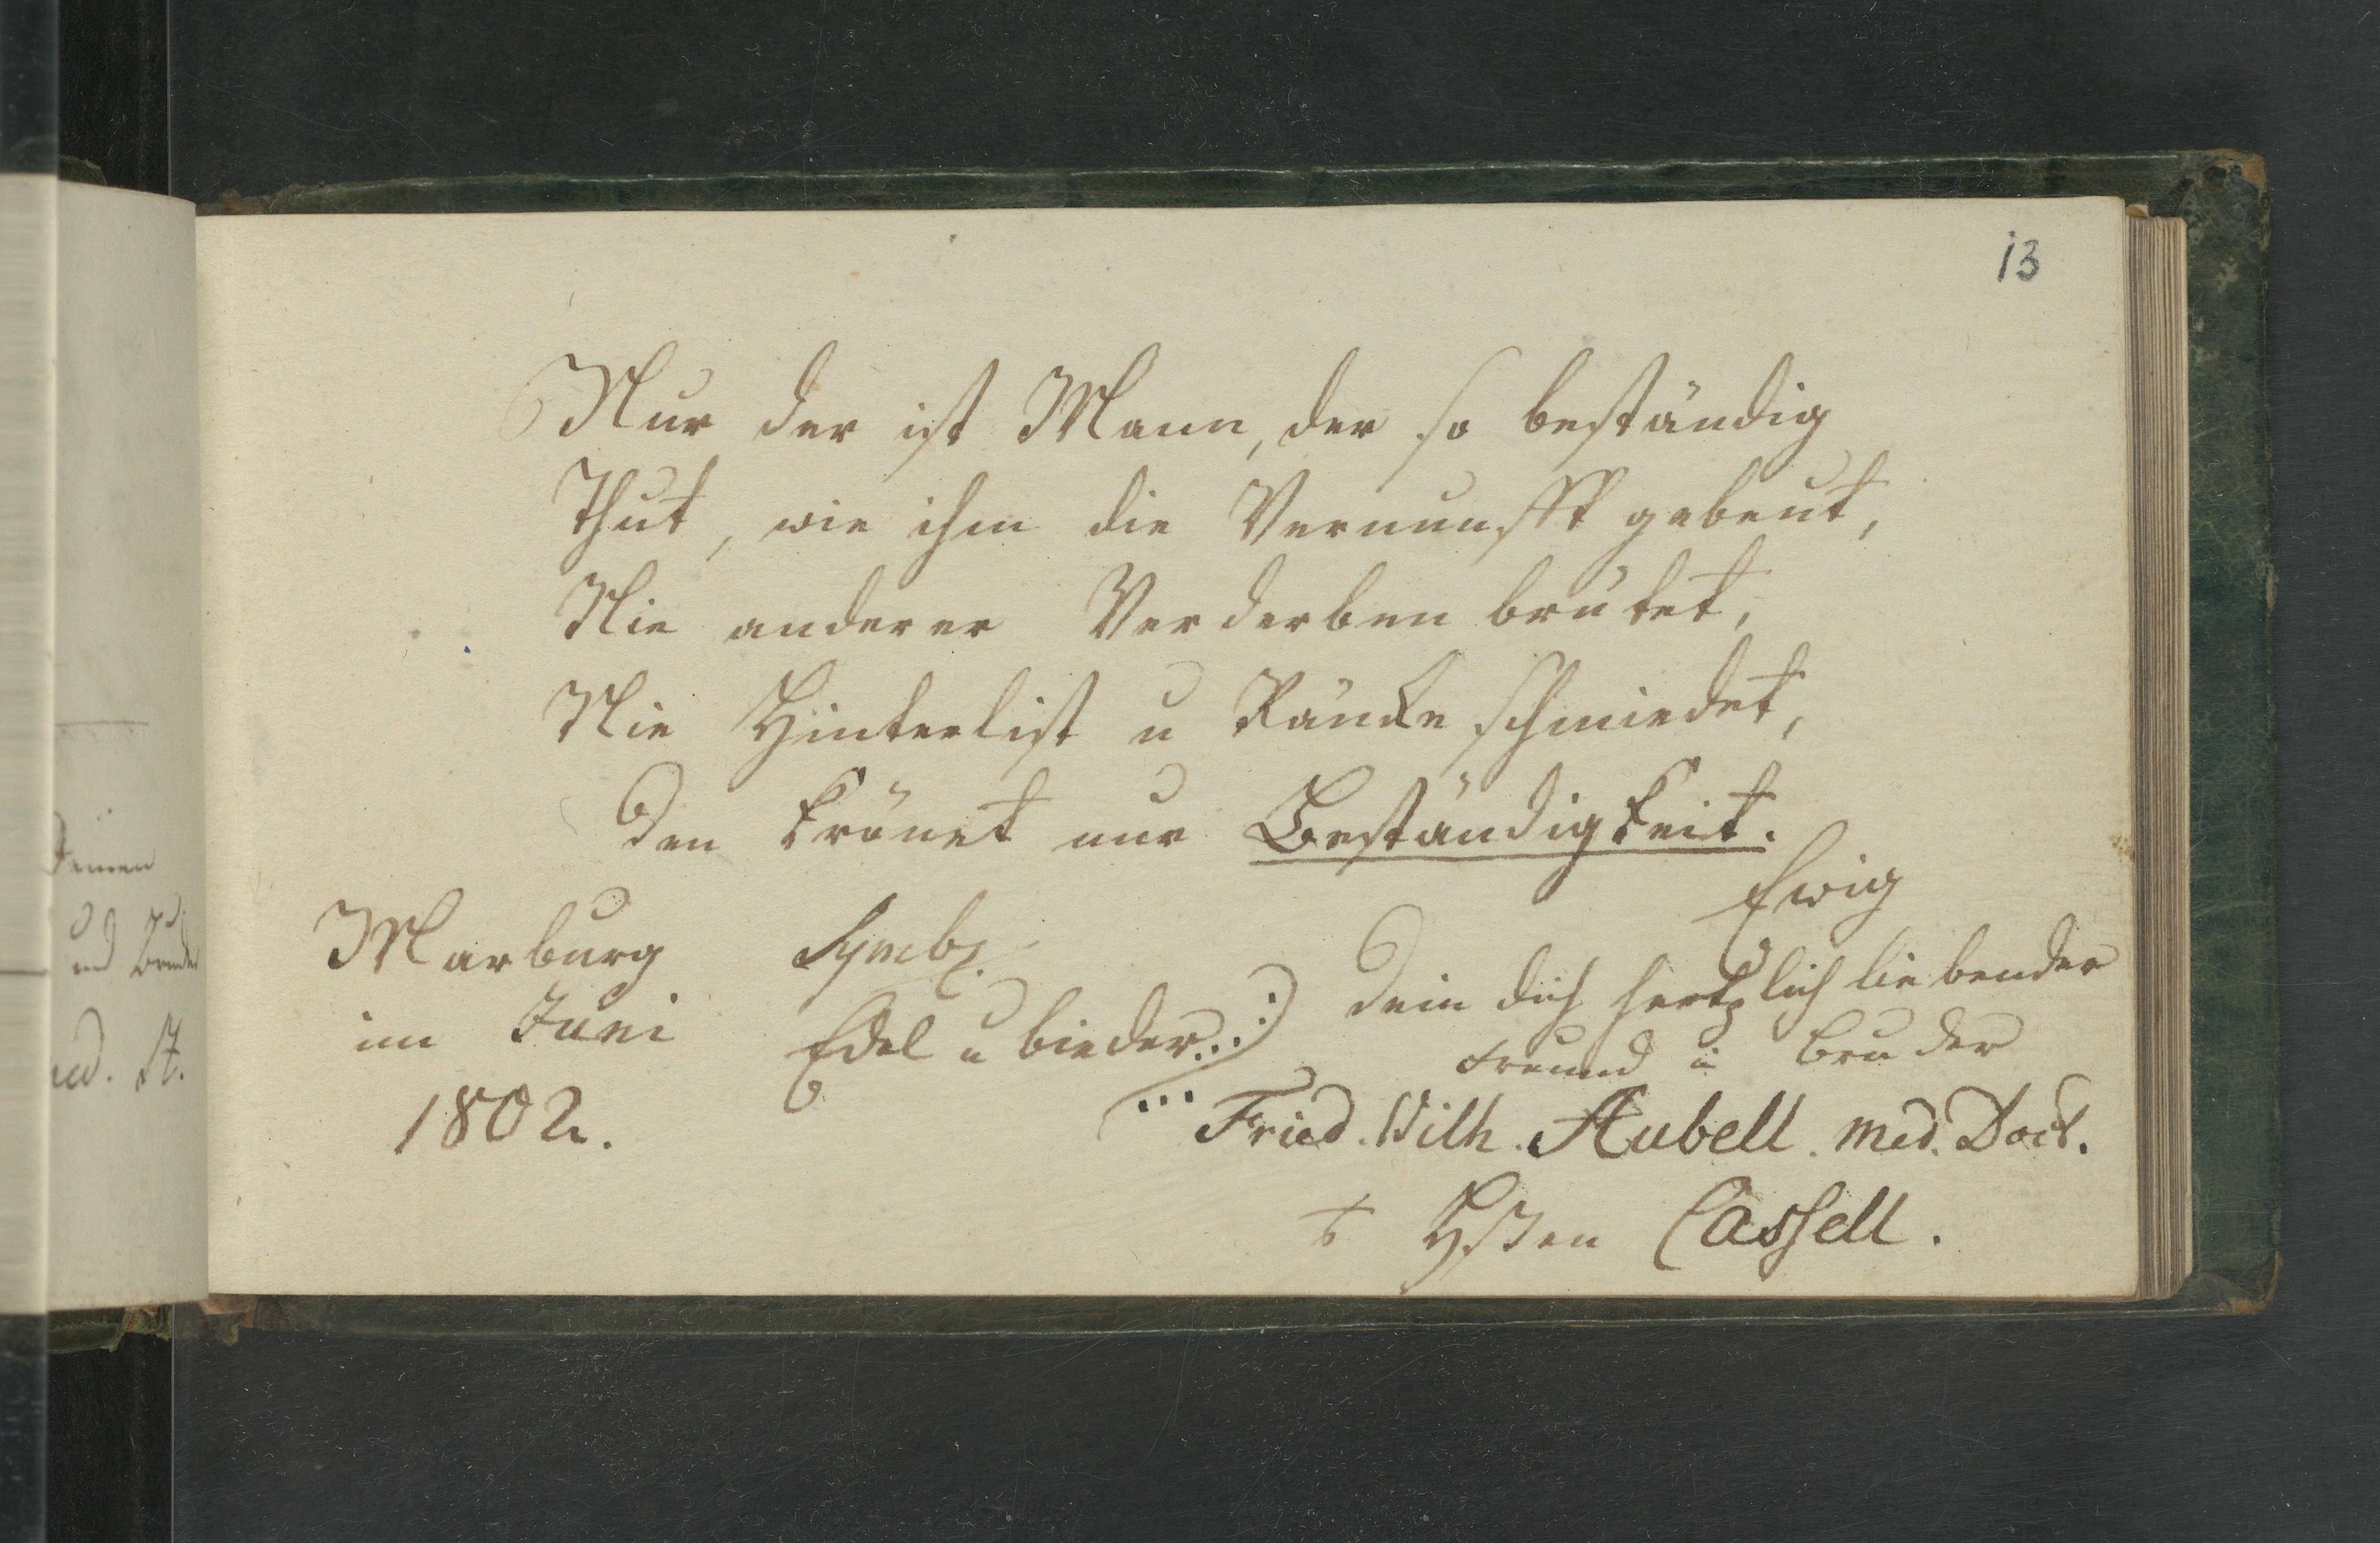 13
Nur der ist Mann, der so beständig
Thut, wie ihm die Vernunfft gebeut,
Nie anderer Verderben brütet,
Nie Hinterlist u Ränke schmiedet,
Den krönet nur Beständigkeit.
Marburg
im Juni
1802.
Symb.
Edel u bieder...
Ewig
Dein dich hertzlich liebender
Freund u Bruder
Fried. Wilh. Aubell. Med. Doct.
Cassell.